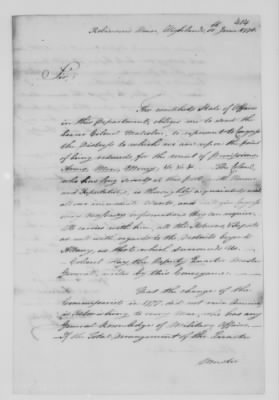 414
Robinson's House, Highlands, 10th June 1778.
Sir,
The wretched State of Affairs
in this Department, obliges me to send the
bearer Colonel Malcolm, to represent to Congress
the Distress to which we are upon the point
of being reduced for the want of Provisions,
Arms, Men, Money, &c &c. The Colonel,
who has long served at this post, with Honour
and Reputation, is thoroughly acquainted with
all our immediate Wants, and will give Congress
every necessary information they can require.
He carries with him, all the Returns & Reports
as well with regard to the Distracted beyond
Albany, as that which surrounds Us.
Colonel Hay, the Deputy Quarter Master
General, writes by this Conveyance.
That the change of the
Commissariat in 1777, did not ruin America
is Astonishing to every Man, who has any
General Knowledge of Military Affairs.
If the Total Management of the Quarter
Master